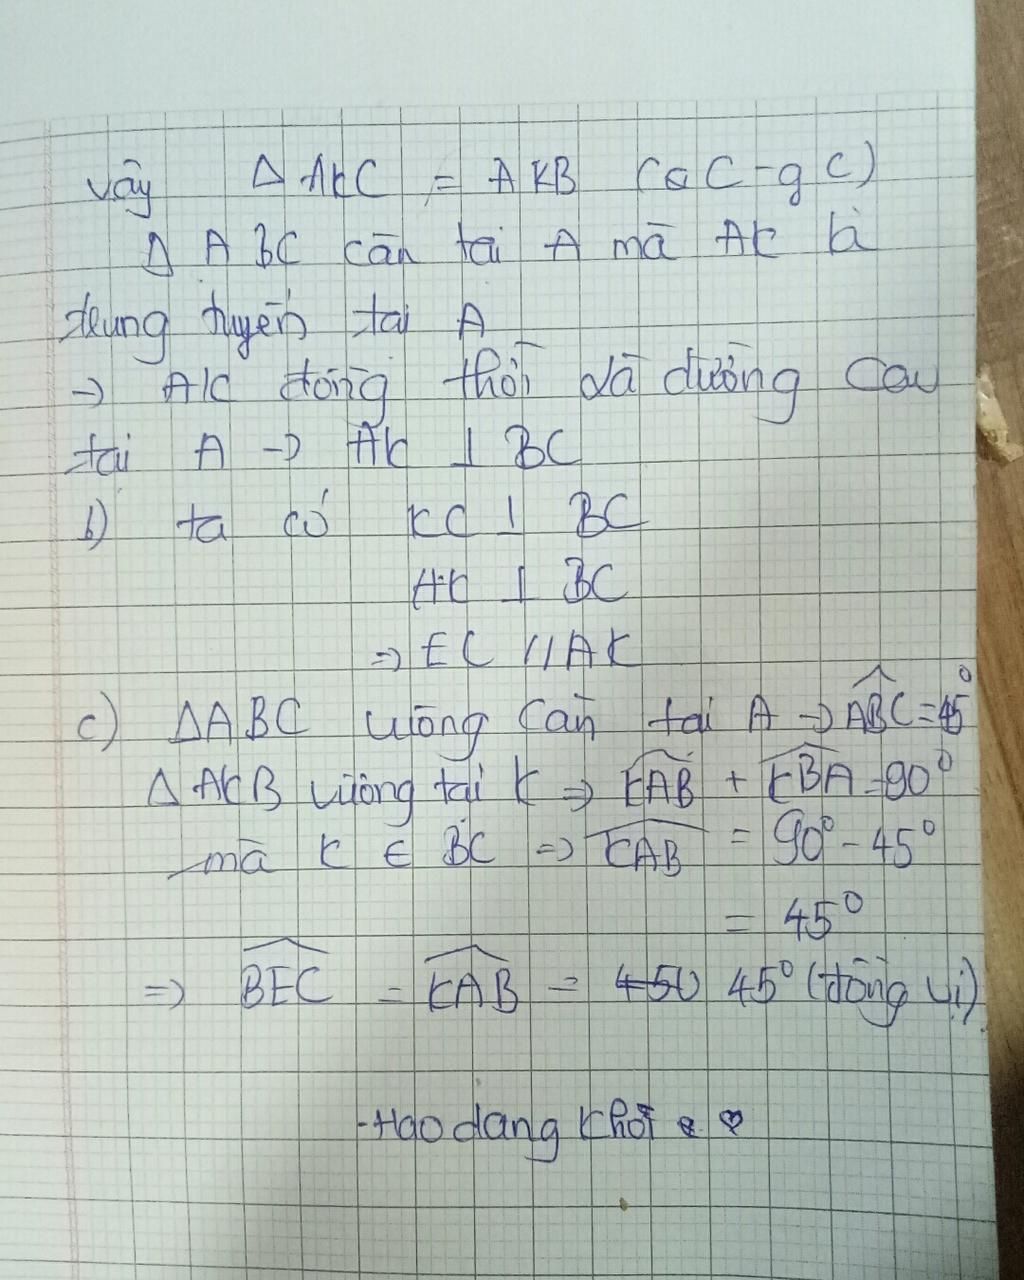 vậy ΔAKC = AKB (c C-g C)
Δ ABC cân tại A mà AK là
trung tuyến tại A
→ AK đồng thời là đường cao
tại A → AK ⊥ BC
b) ta có KC ⊥ BC
AK ⊥ BC
⇒ EC // AK
c) ΔABC vuông cân tại A → ABC = 45°
Δ AKB vuông tại K ⇒ KAB + KBA = 90°
mà K ∈ BC ⇒ KAB = 90° - 45°
= 45°
⇒ BEC = KAB = 450 45° (đồng vị)
-Hao dang Khôi